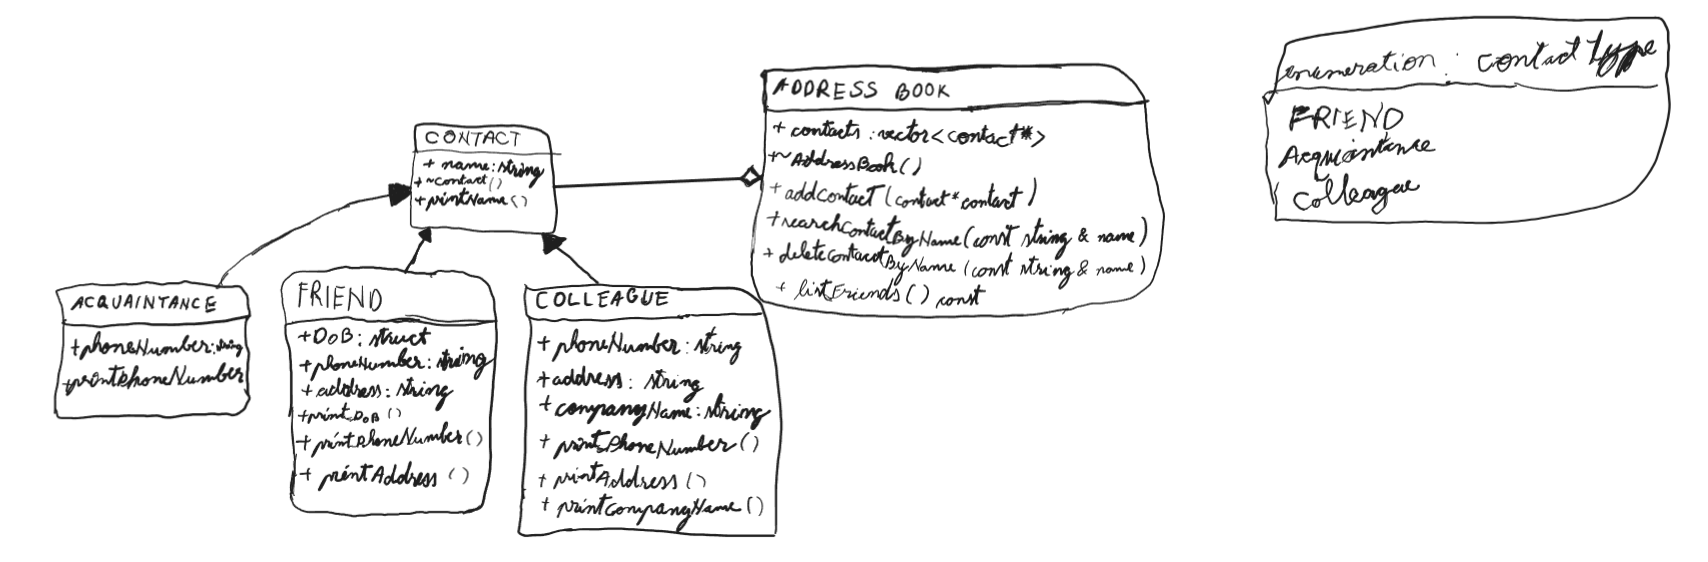 CONTACT
+ name: string
+ ~contact()
+ printName()
ADDRESS BOOK
+ contacts : vector<contact*>
+~AddressBook()
+ addcontact(contact*contact)
+searchContactByName(const string & name)
+ deleteContactByName(const string & name)
+ listFriends() const
enumeration : contact type
FRIEND
Acquaintance
Colleague
ACQUAINTANCE
+phoneNumber:string
+printPhoneNumber
FRIEND
+DoB: struct
+phoneNumber: string
+ address: string
+print DoB ()
+printPhoneNumber()
+ printAddress ()
COLLEAGUE
+ phoneNumber: string
+address: string
+ companyName: string
+ printPhoneNumber()
+ printAddress ()
+ printCompanyName ()